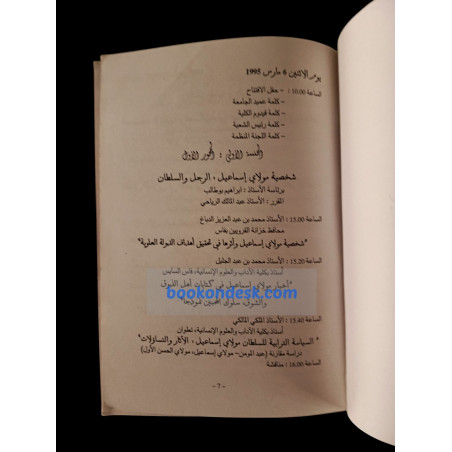 يوم الاثنين 6 مارس 1995
الساعة 10.00 : - حفل الافتتاح
- كلمة عميد الجامعة
- كلمة قيدوم الكلية
- كلمة رئيس الشعبة
- كلمة اللجنة المنظمة
الجلسة الأولى : المحور الأول
شخصية مولاي إسماعيل، الرجل والسلطان
برئاسة الأستاذ : ابراهيم بوطالب
المقرر : الأستاذ عبد المالك الرياحي
الساعة 15.00 : الأستاذ محمد بن عبد العزيز الدباغ
محافظ خزانة القرويين بفاس
"شخصية مولاي إسماعيل وأثرها في تحقيق أهداف الدولة العلوية"
الساعة 15.20 : الأستاذ محمد بن عبد الجليل
أستاذ بكلية الآداب والعلوم الإنسانية، فاس السايس
"أخبار مولاي إسماعيل في كتابات أهل الذوق
والشوق سلوان المحبين نموذجا"
bookondesk.com
الساعة 15.40 : الأستاذ الملكي المالكي
أستاذ بكلية الآداب والعلوم الإنسانية، تطوان
"السياسة الترابية للسلطان مولاي إسماعيل، الآثار والتساؤلات"
دراسة مقارنة (عبد المومن - مولاي إسماعيل، مولاي الحسن الأول)
الساعة 16.00 : مناقشة
- 7 -